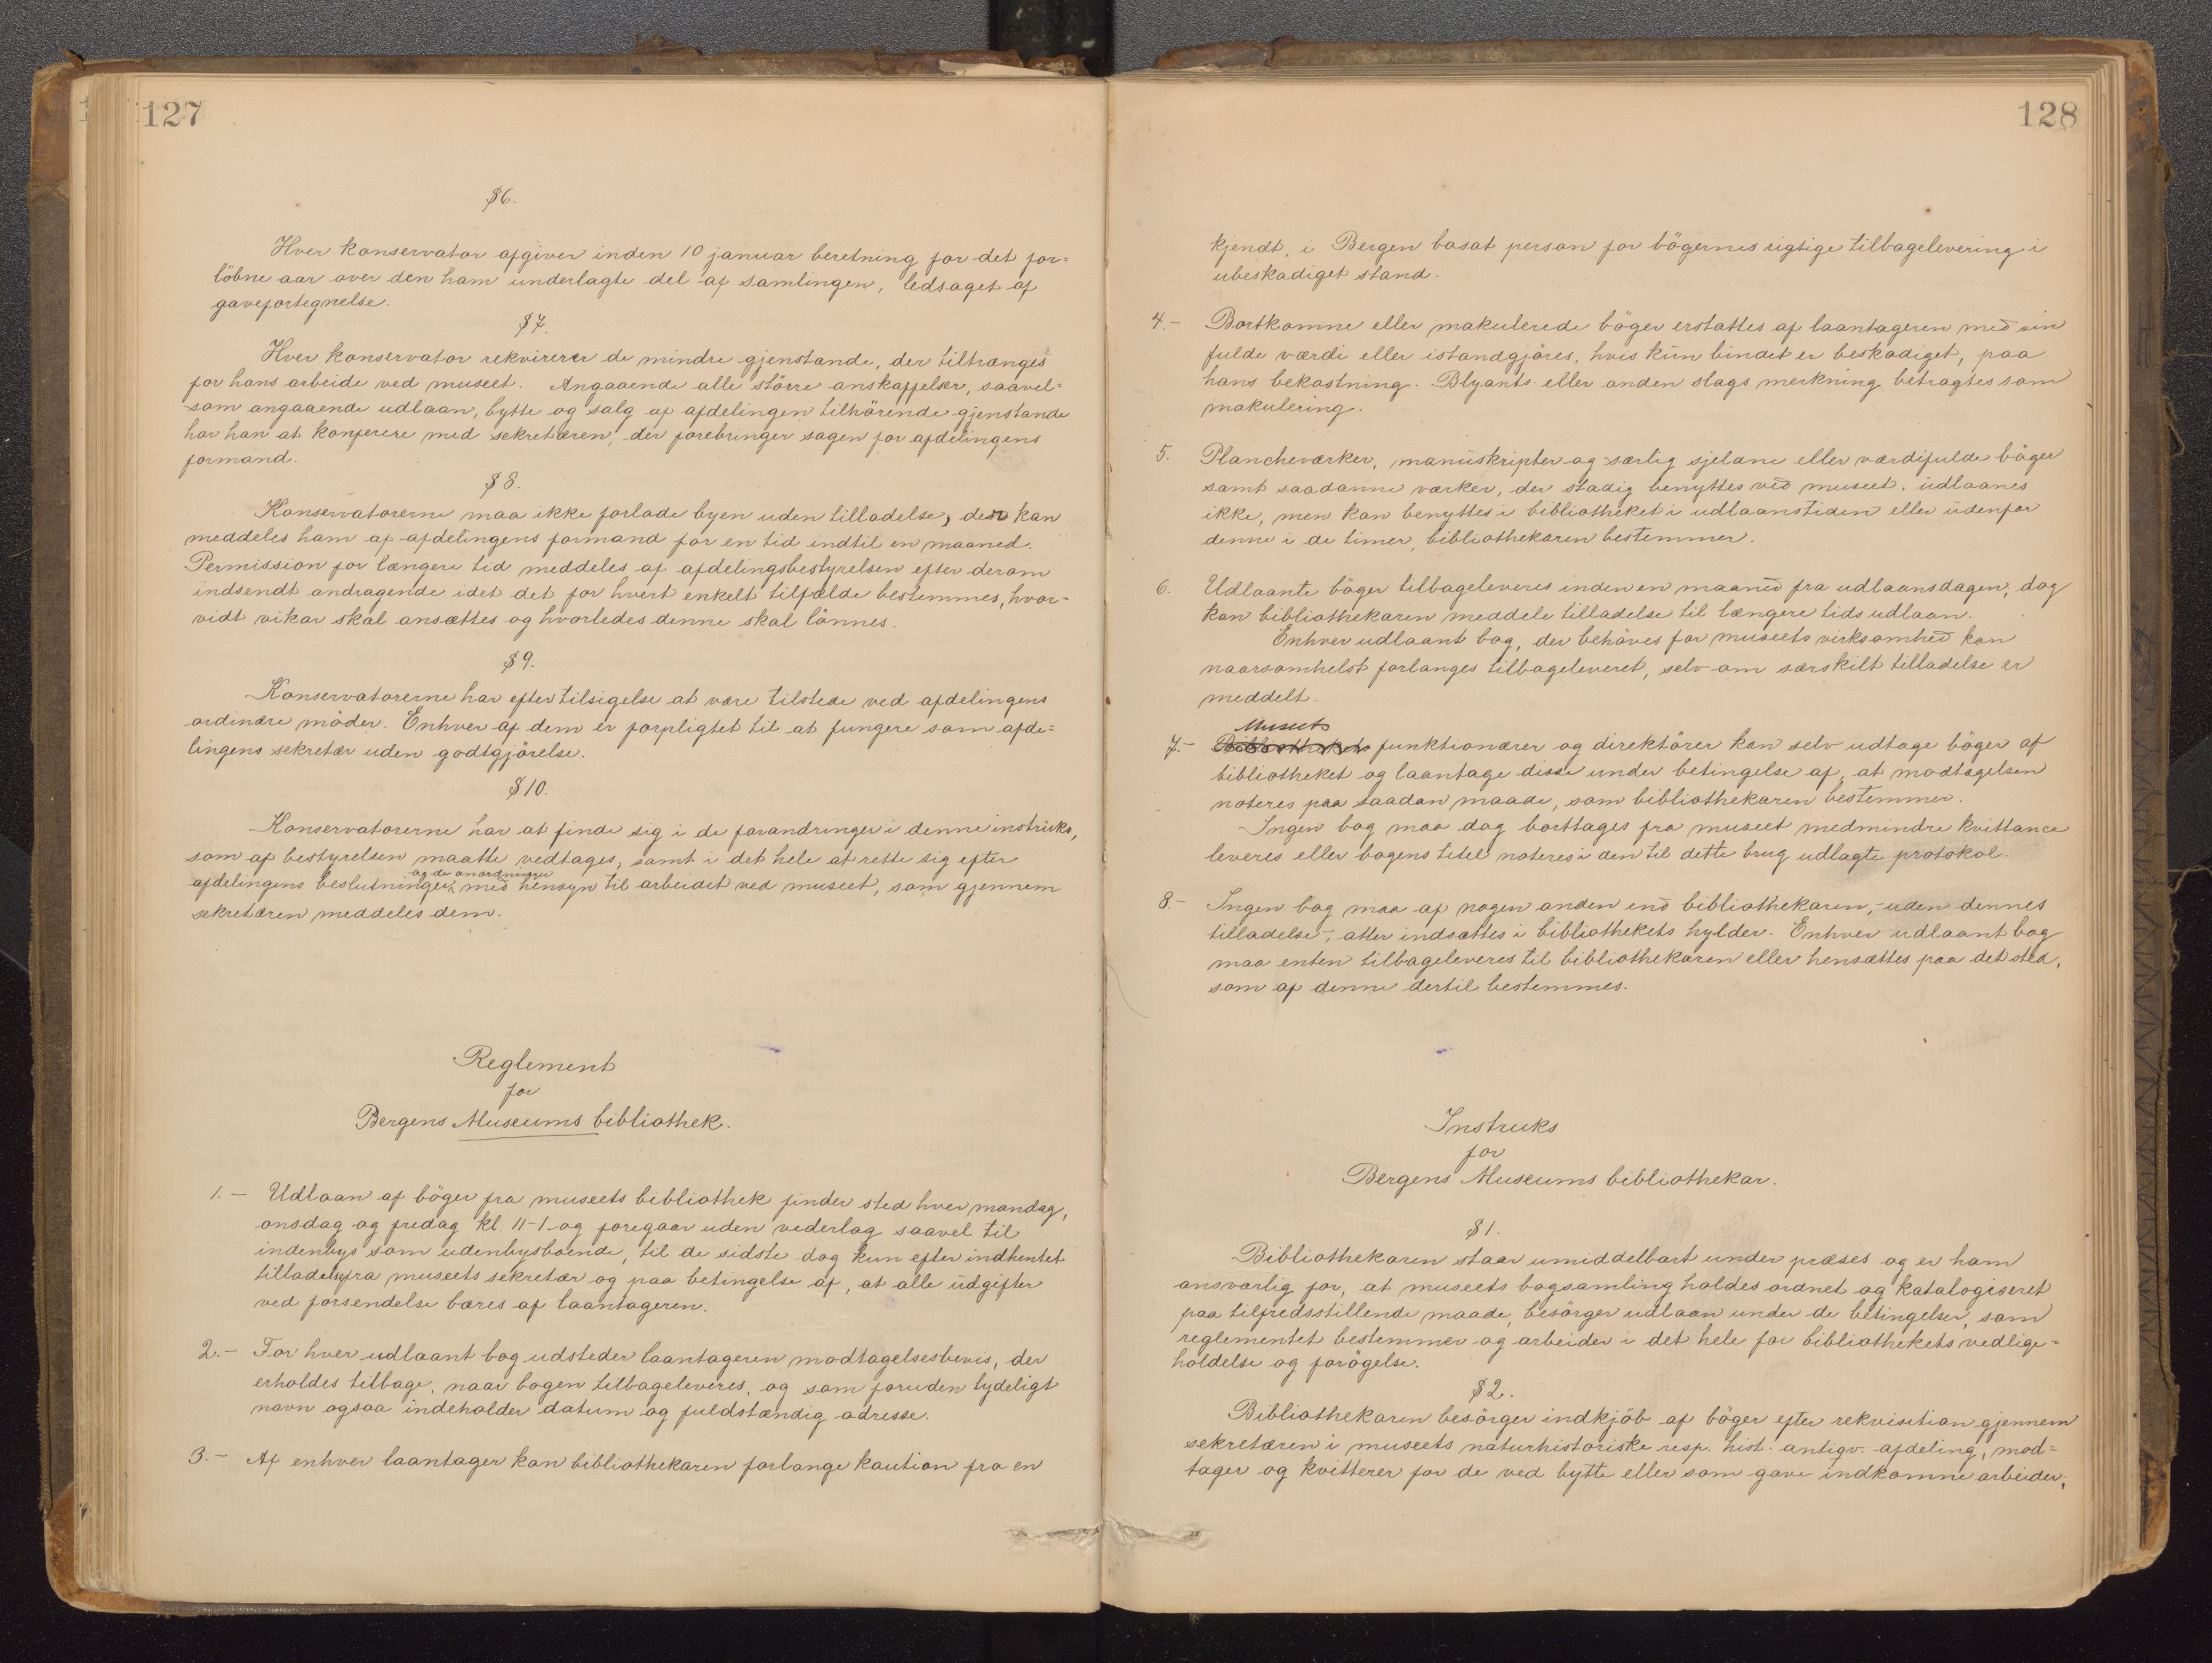 127
§6.
Hver konservator afgiver inden 10 januar beretning for det for=
löbne aar over den ham underlagte del af samlingen, ledsaget af
gavefortegnelse.
§7.
Hver konservator rekvirerer de mindre gjenstande, der tiltrænges
for hans arbeide ved museet. Angaaende alle större anskaffelser, saavel=
som angaaende udlaan, bytte og salg af afdelingen tilhörende gjenstande
har han at konferere med sekretæren, der forebringer sagen for afdelingens
formand.
§8.
Konservatorerne maa ikke forlade byen uden tilladelse, der kan
meddeles ham af afdelingens formand for en tid indtil en maaned.
Permission for længere tid meddeles af afdelingsbestyrelsen efter derom
indsendt andragende idet det for hvert enkelt tilfælde bestemmes, hvor-
vidt vikar skal ansættes og hvorledes denne skal lönnes.
§9.
Konservatorerne har efter tilsigelse at være tilstede ved afdelingens
ordinære möder. Enhver af dem er forpligtet til at fungere som afde=
lingens sekretær uden godtgjörelse.
§10.
Konservatorerne har at finde sig i de forandringer i denne instruks,
som af bestyrelsen maatte vedtages, samt i det hele at rette sig efter
og de anordninger
afdelingens beslutninger med hensyn til arbeidet ved museet, som gjennem
sekretæren meddeles dem.
Reglement
for
Bergens Museums bibliothek.
1. - Udlaan af böger fra museets bibliothek finder sted hver mandag,
onsdag og fredag kl. 11-1 og foregaar uden vederlag saavel til
indenbys som udenbysboende, til de sidste dog kun efter indhentet
tilladelse fra museets sekretær og paa betingelse af, at alle udgifter
ved forsendelse bæres af laantageren.
2. - For hver udlaant bog udsteder laantageren modtagelsesbevis, der
erholdes tilbage, naar bogen tilbageleveres, og som foruden tydeligt
navn ogsaa indeholder datum og fuldstændig adresse.
3. - Af enhver laantager kan bibliothekaren forlange kaution fra en
128
kjendt, i Bergen bosat person for bögernes rigtige tilbagelevering i
ubeskadiget stand.
4. - Bortkomne eller makulerede böger erstattes af laantageren med sin
fulde værdi eller istandgjöres, hvis kun bindet er beskadiget, paa
hans bekostning. Blyants eller anden slags merkning betragtes som
makulering.
5. Plancheværker, manuskripter og særlig sjeldne eller værdifulde böger
samt saadanne værker, der stadig benyttes ved museet, udlaanes
ikke, men kan benyttes i bibliotheket i udlaanstiden eller udenfor
denne i de timer, bibliothekaren bestemmer.
6. Udlaante böger tilbageleveres inden en maaned fra udlaansdagen; dog
kan bibliothekaren meddele tilladelse til længere tids udlaan.
Enhver udlaant bog, der behöves for museets virksomhed kan
naarsomhelst forlanges tilbageleveret, selv om særskilt tilladelse er
meddelt.
Museets
7. - Bibliothekets funktionærer og direktörer kan selv udtage böger af
bibliotheket og laantage disse under betingelse af, at modtagelsen
noteres paa saadan maade, som bibliothekaren bestemmer.
Ingen bog maa dog borttages fra museet medmindre kvittance
leveres eller bogens titel noteres i den til dette brug udlagte protokol.
8. - Ingen bog maa af nogen anden end bibliothekaren, - uden dennes
tilladelse -, atter indsættes i bibliothekets hylder. Enhver udlaant bog
maa enten tilbageleveres til bibliothekaren eller hensættes paa det sted,
som af denne dertil bestemmes.
Instruks
for
Bergens Museums bibliothekar.
§1.
Bibliothekaren staar umiddelbart under præses og er ham
ansvarlig for, at museets bogsamling holdes ordnet og katalogiseret
paa tilfredsstillende maade, besörger udlaan under de betingelser, som
reglementet bestemmer og arbeider i det hele for bibliothekets vedlige=
holdelse og forögelse.
§2.
Bibliothekaren besörger indkjöb af böger efter rekvisition gjennem
sekretæren i museets naturhistoriske resp. hist. antiqv. afdeling, mod=
tager og kvitterer for de ved bytte eller som gave indkomne arbeider,